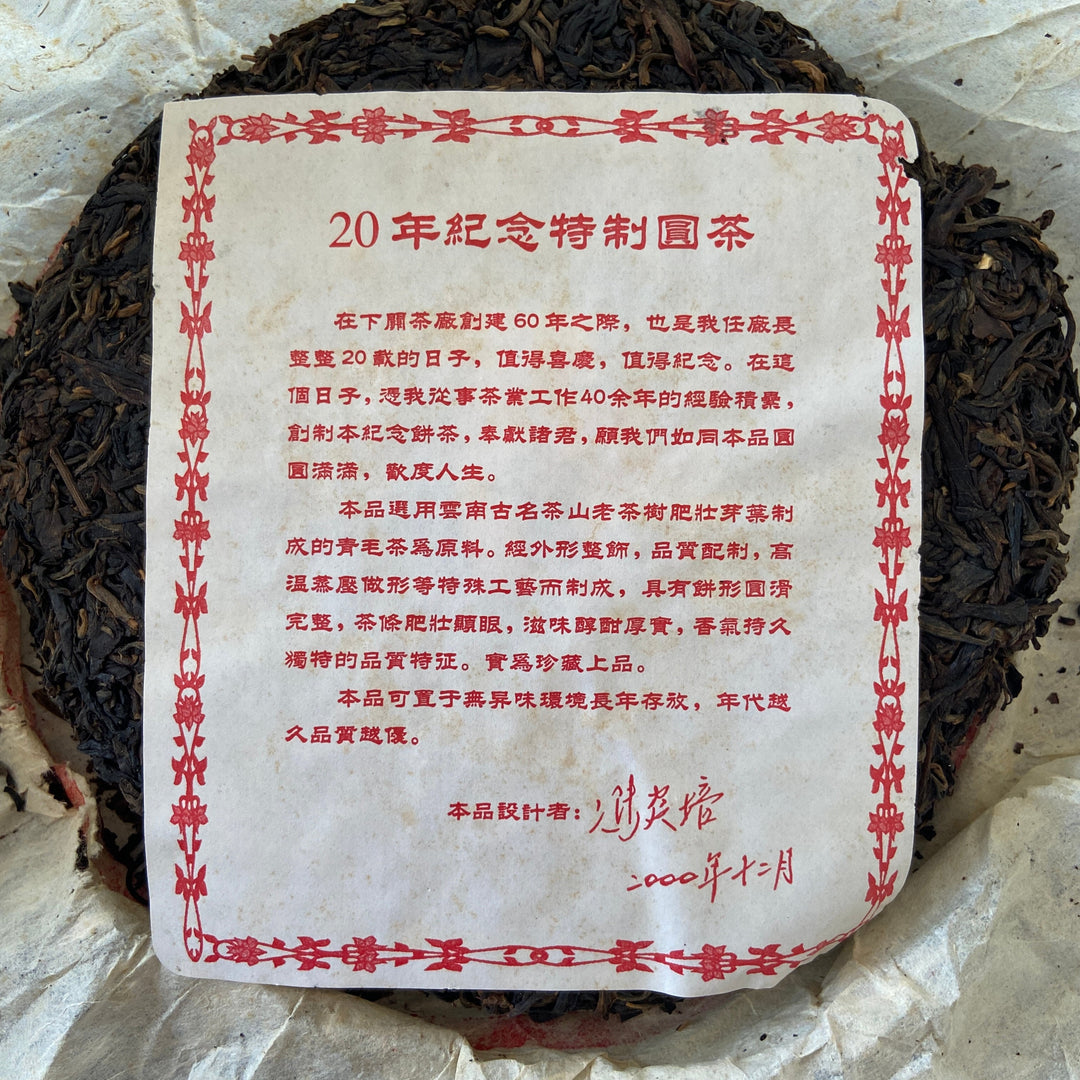 20年紀念特制圓茶
在下關茶廠創建60年之際，也是我任廠長
整整20載的日子，值得喜慶，值得紀念。在這
個日子，憑我從事茶業工作40余年的經驗積累，
創制本紀念餅茶，奉獻諸君，願我們如同本品圓
圓滿滿，歡度人生。
本品選用雲南古名茶山老茶樹肥壯芽葉制
成的青毛茶爲原料。經外形整飾，品質配制，高
温蒸壓做形等特殊工藝而制成，具有餅形圓滑
完整，茶條肥壯顯眼，滋味醇酣厚實，香氣持久
獨特的品質特征。實爲珍藏上品。
本品可置于無异味環境長年存放，年代越
久品質越優。
本品設計者：馮炎培
二000年十二月